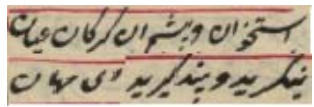 استخوان و پشم ان کرکان عیان
بنکرید و پند کیرید ای مهان